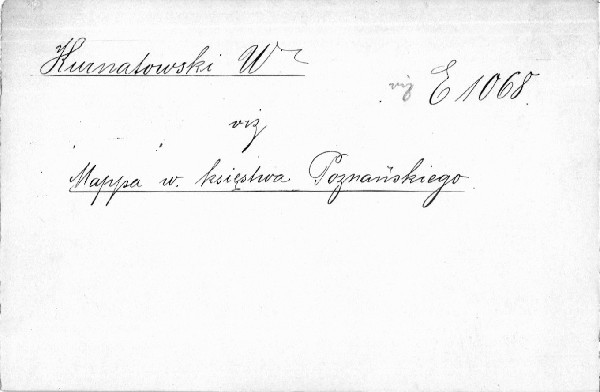 Kurnatowski W
viz E 1068.
viz
Mappa w. księstwa Poznańskiego.